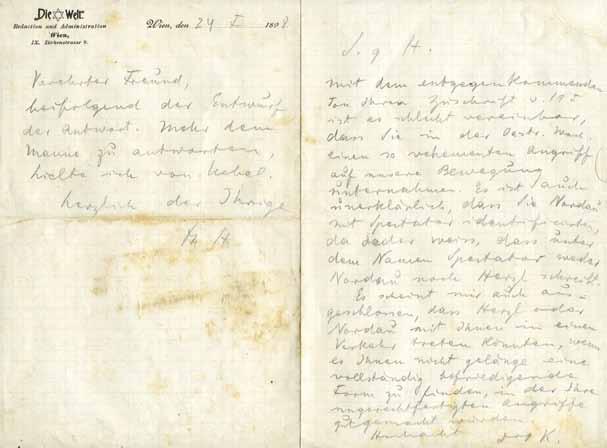 „Die Welt“
Redaction und Administration
Wien,
IX. Türkenstrasse 9.
Wien, den 24 I 1898.
Verehrter Freund,
beifolgend der Entwurf
der Antwort. Mehr dem
Manne zu antworten,
hielte ich von Uebel.
Herzlich der Ihrige
Th H
S. g H.
mit dem entgegenkommenden
Ton Ihrer Zuschrift v. 19 I
ist es schlecht vereinbar,
dass Sie in der Oestr. Woch.
einen so vehementen Angriff
auf unsere Bewegung
unternahmen. Es ist auch
unerklärlich, dass Sie Nordau
mit Spectator identificirten,
da jeder weiss, dass unter
dem Namen Spectator weder
Nordau noch Herzl schreibt.
Es scheint mir auch aus-
geschlossen, dass Herzl oder
Nordau mit Ihnen in einen
Verkehr treten könnten, wenn
es Ihnen nicht gelänge eine
vollständig befriedigende
Form zu finden, in der Ihre
ungerechtfertigten Angriffe
gutgemacht würden.
K.